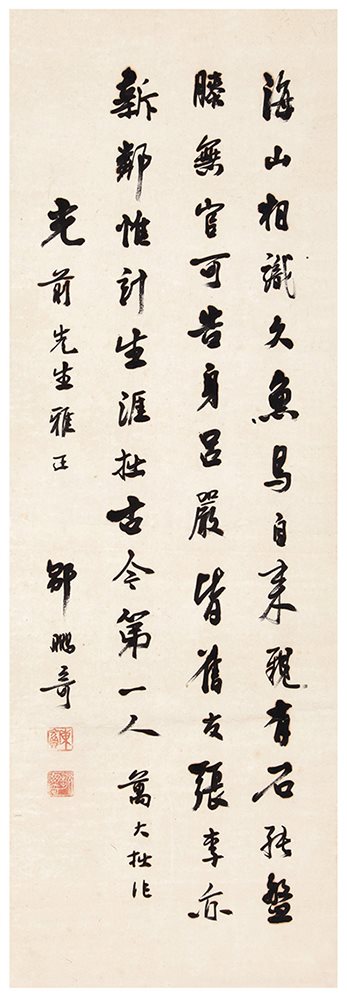 海山相識久魚鳥自来親有石能盤
膝無官可告身呂嚴皆舊友張李亦
新鄰惟計生涯拙古今第一人 萬大拙作
光前先生雅正 鄒鵬奇